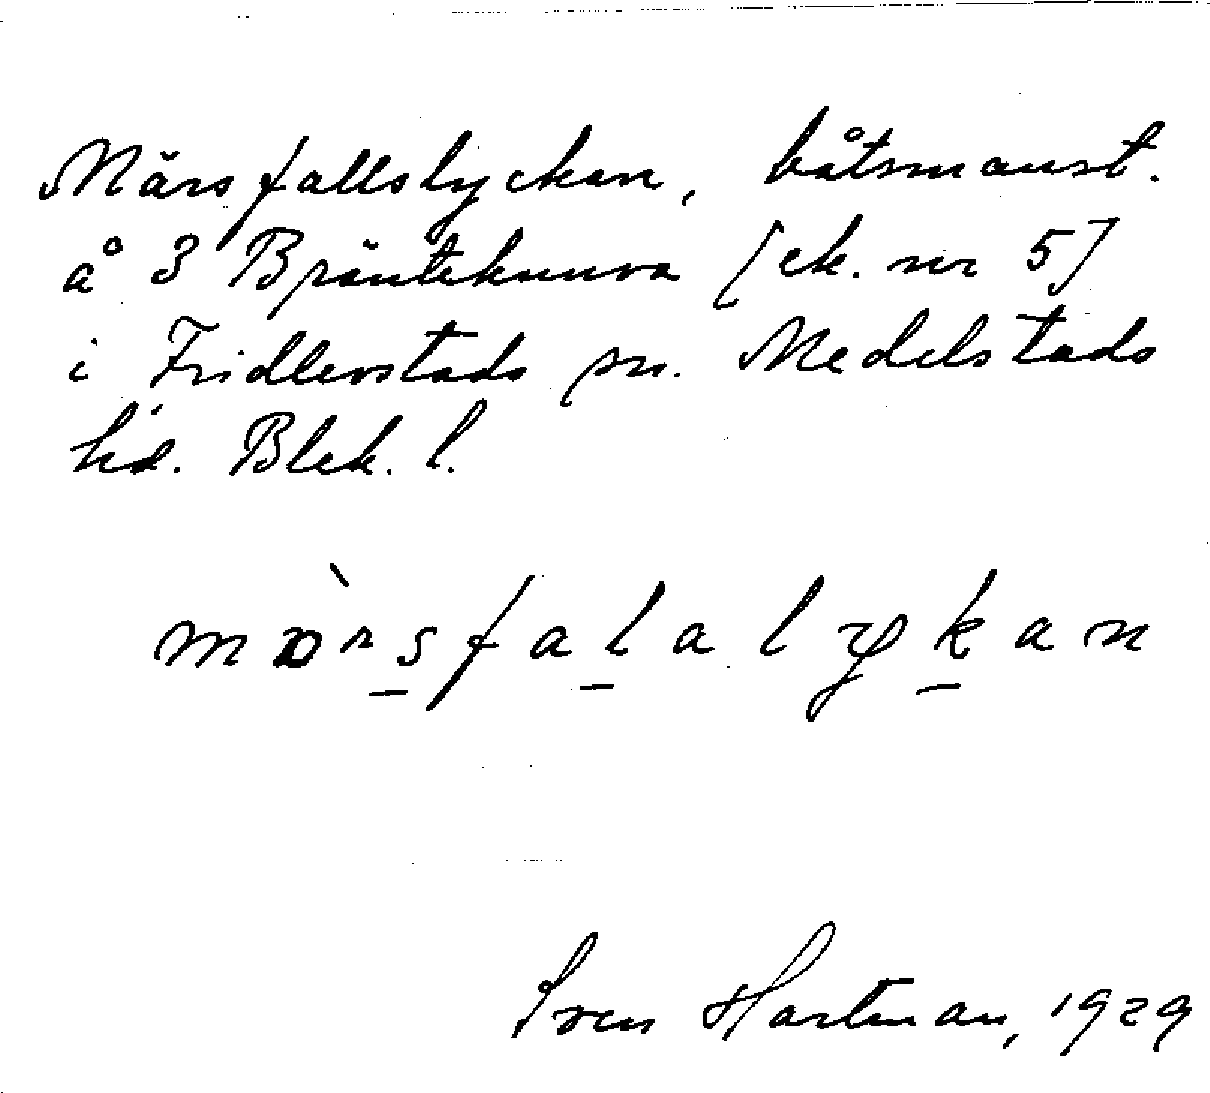 Märsfallslyckan, båtsmanst.
å 3 Bränteknuva [ek. nr 5]
i Fridlevstads sn. Medelstads
hd. Blek. l.
mὰrsfalalykan
Sven Hartman, 1929